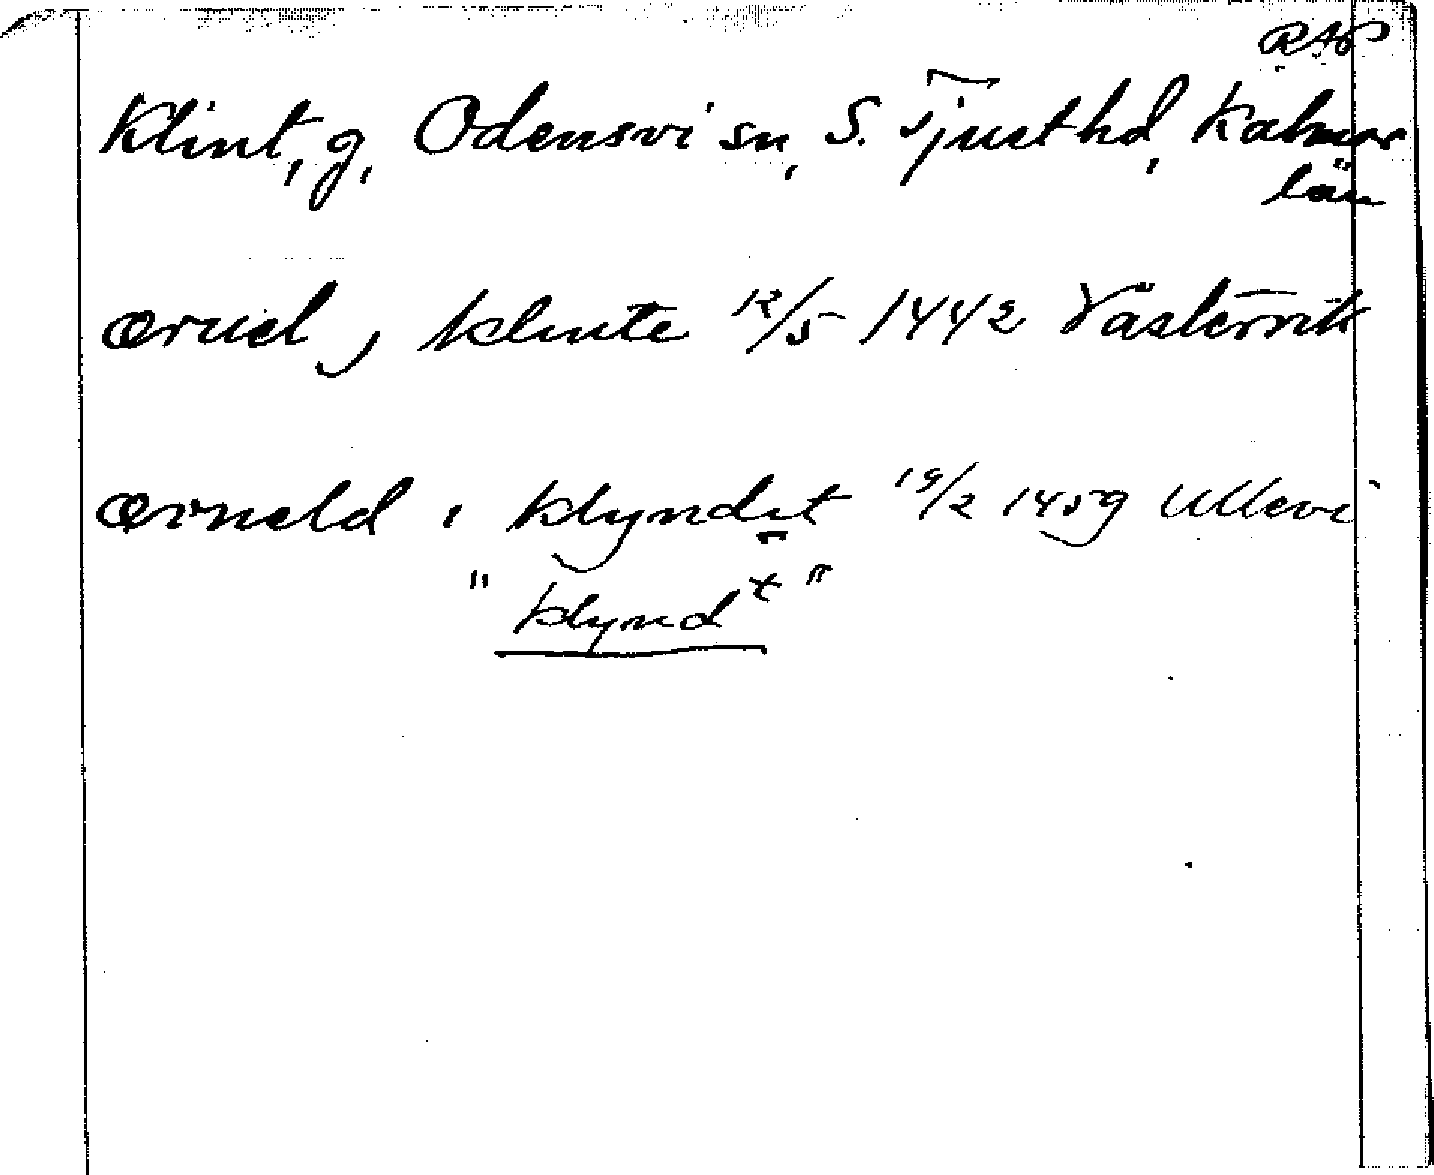 RAP
Klint, g, Odensvi sn, S. Tjust hd, Kalmar
län
Øruel j klinte 12/5 1442 Västervik
Ørneld i klyndit 19/2 1459 Ullevi
"klynd t"